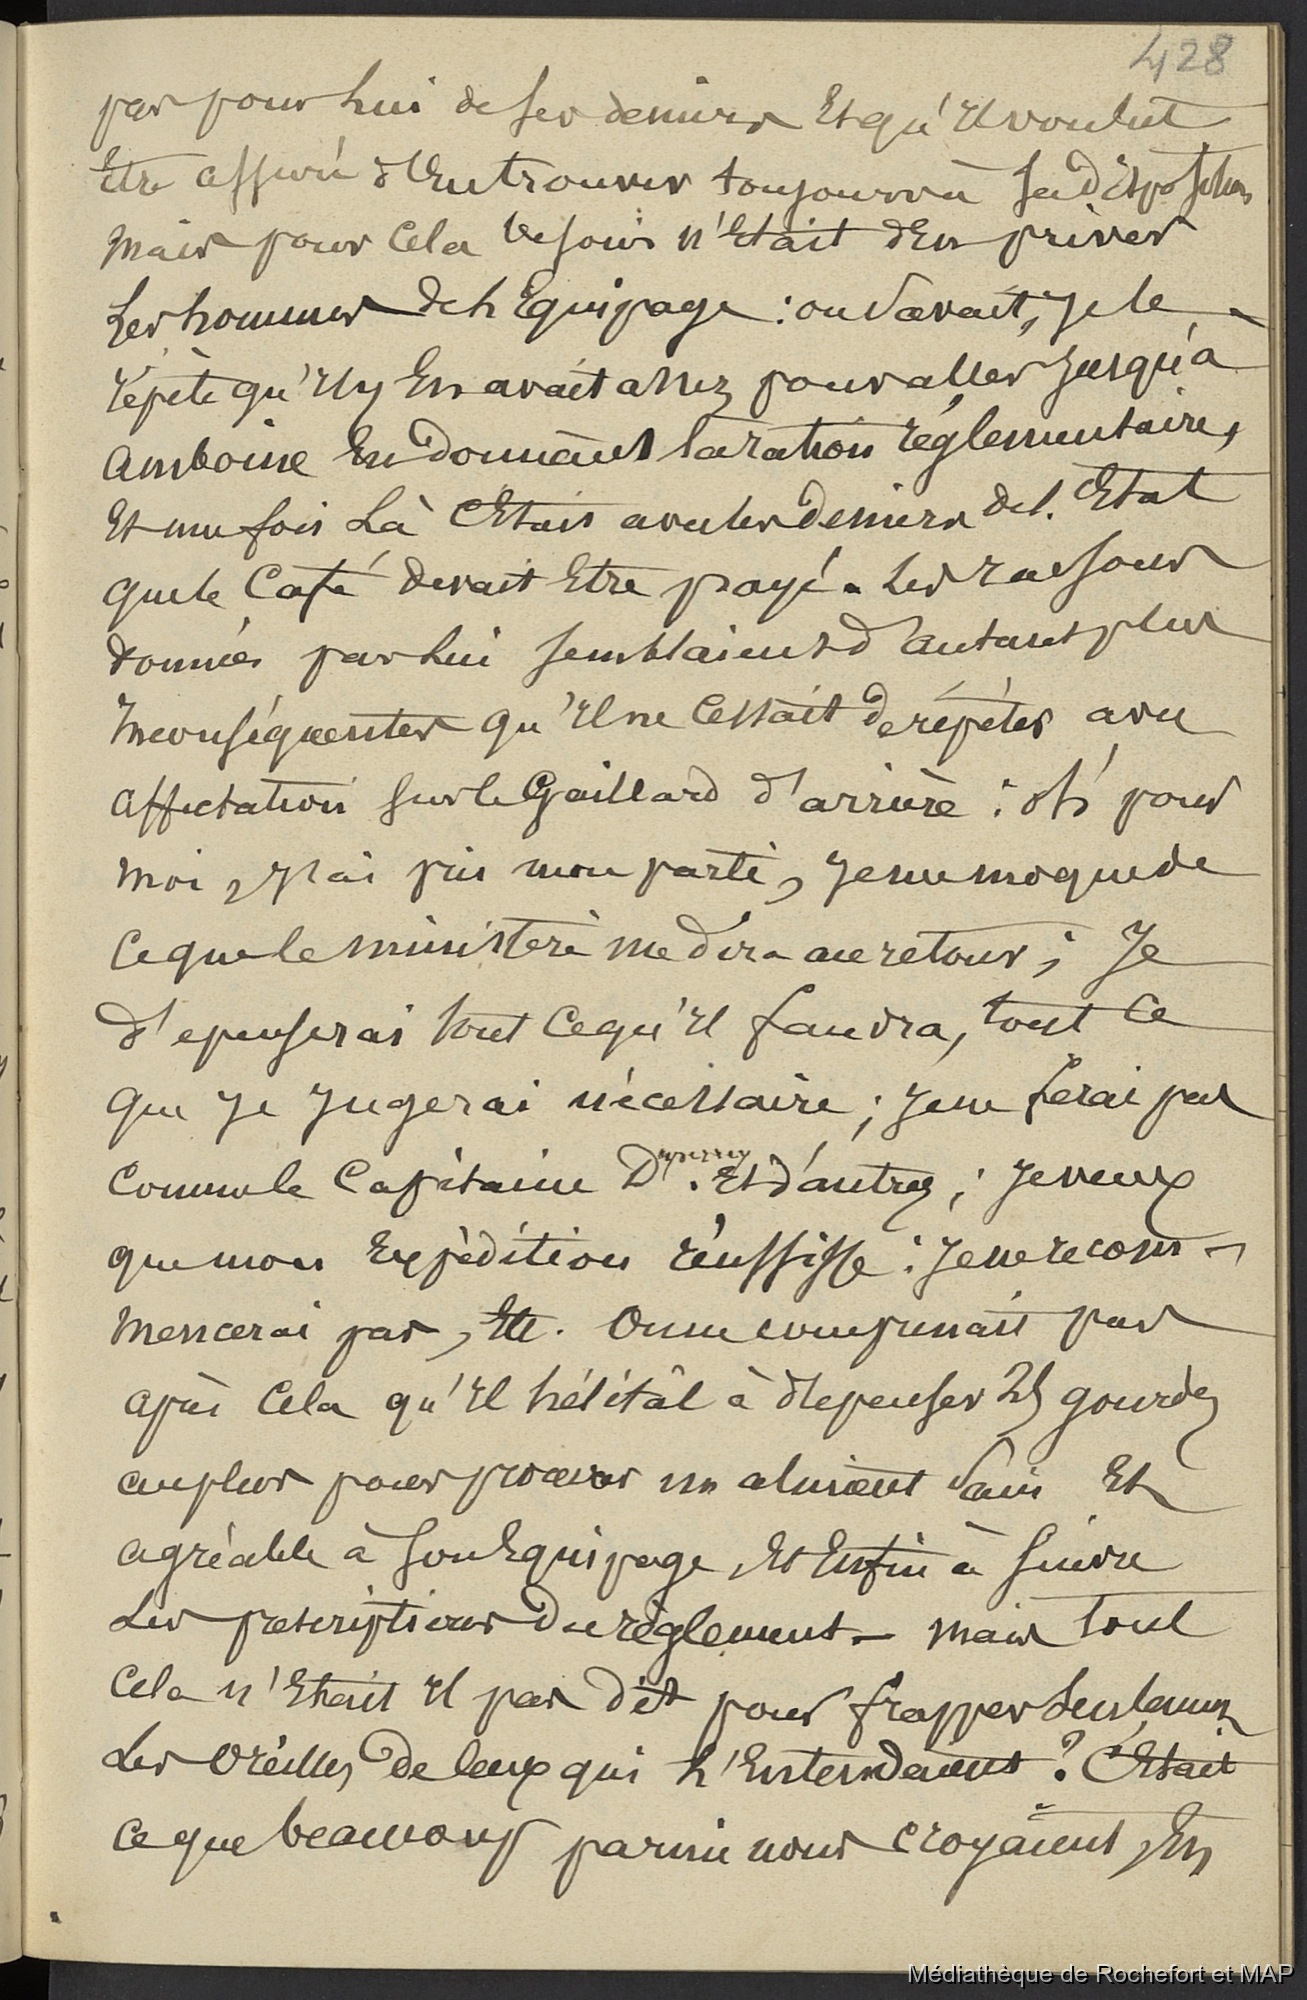 428
par pour lui de ses deniers Et qu'Il voulut
Etre assuré d'En trouver toujours à sa disposition
Mais pour Cela besoin n'Etait d'En priver
Les hommes de l'Equipage : on savait, Je le
répète qu'Il y En avait assez pour aller Jusqu'à
Amboine En donnant la ration réglementaire,
Et une fois Là C'Etait avec les deniers de l'Etat
que le Café devait Etre payé. Les raisons
données par Lui semblaient d'autant plus
Inconséquentes qu'Il ne Cessait de répéter avec
affectation sur le Gaillard d'arrière : oh pour
Moi, J'ai pris mon parti, Je me moque de
Ce que le ministère me dira au retour ; Je
dépenserai tout Ce qu'Il faudra, tout Ce
que Je Jugerai nécessaire ; Je ne ferai pas
Comme le Capitaine Duperrey. Et d'autres ; Je veux
que mon Expédition réussisse : Je ne recom-
mencerai pas, Etc. On ne comprenait pas
après Cela qu'Il hésitât à dépenser 25 gourdes
au plus pour procurer un aliment Sain Et
agréable à son Equipage, Et Enfin à suivre
Les prescriptions du règlement — Mais tout
Cela n'Etait Il pas dit pour frapper seulement
Les Oreilles de Ceux qui L'Entendaient ? C'Etait
Ce que beaucoup parmi nous croyaient, En
Médiathèque de Rochefort et MAP